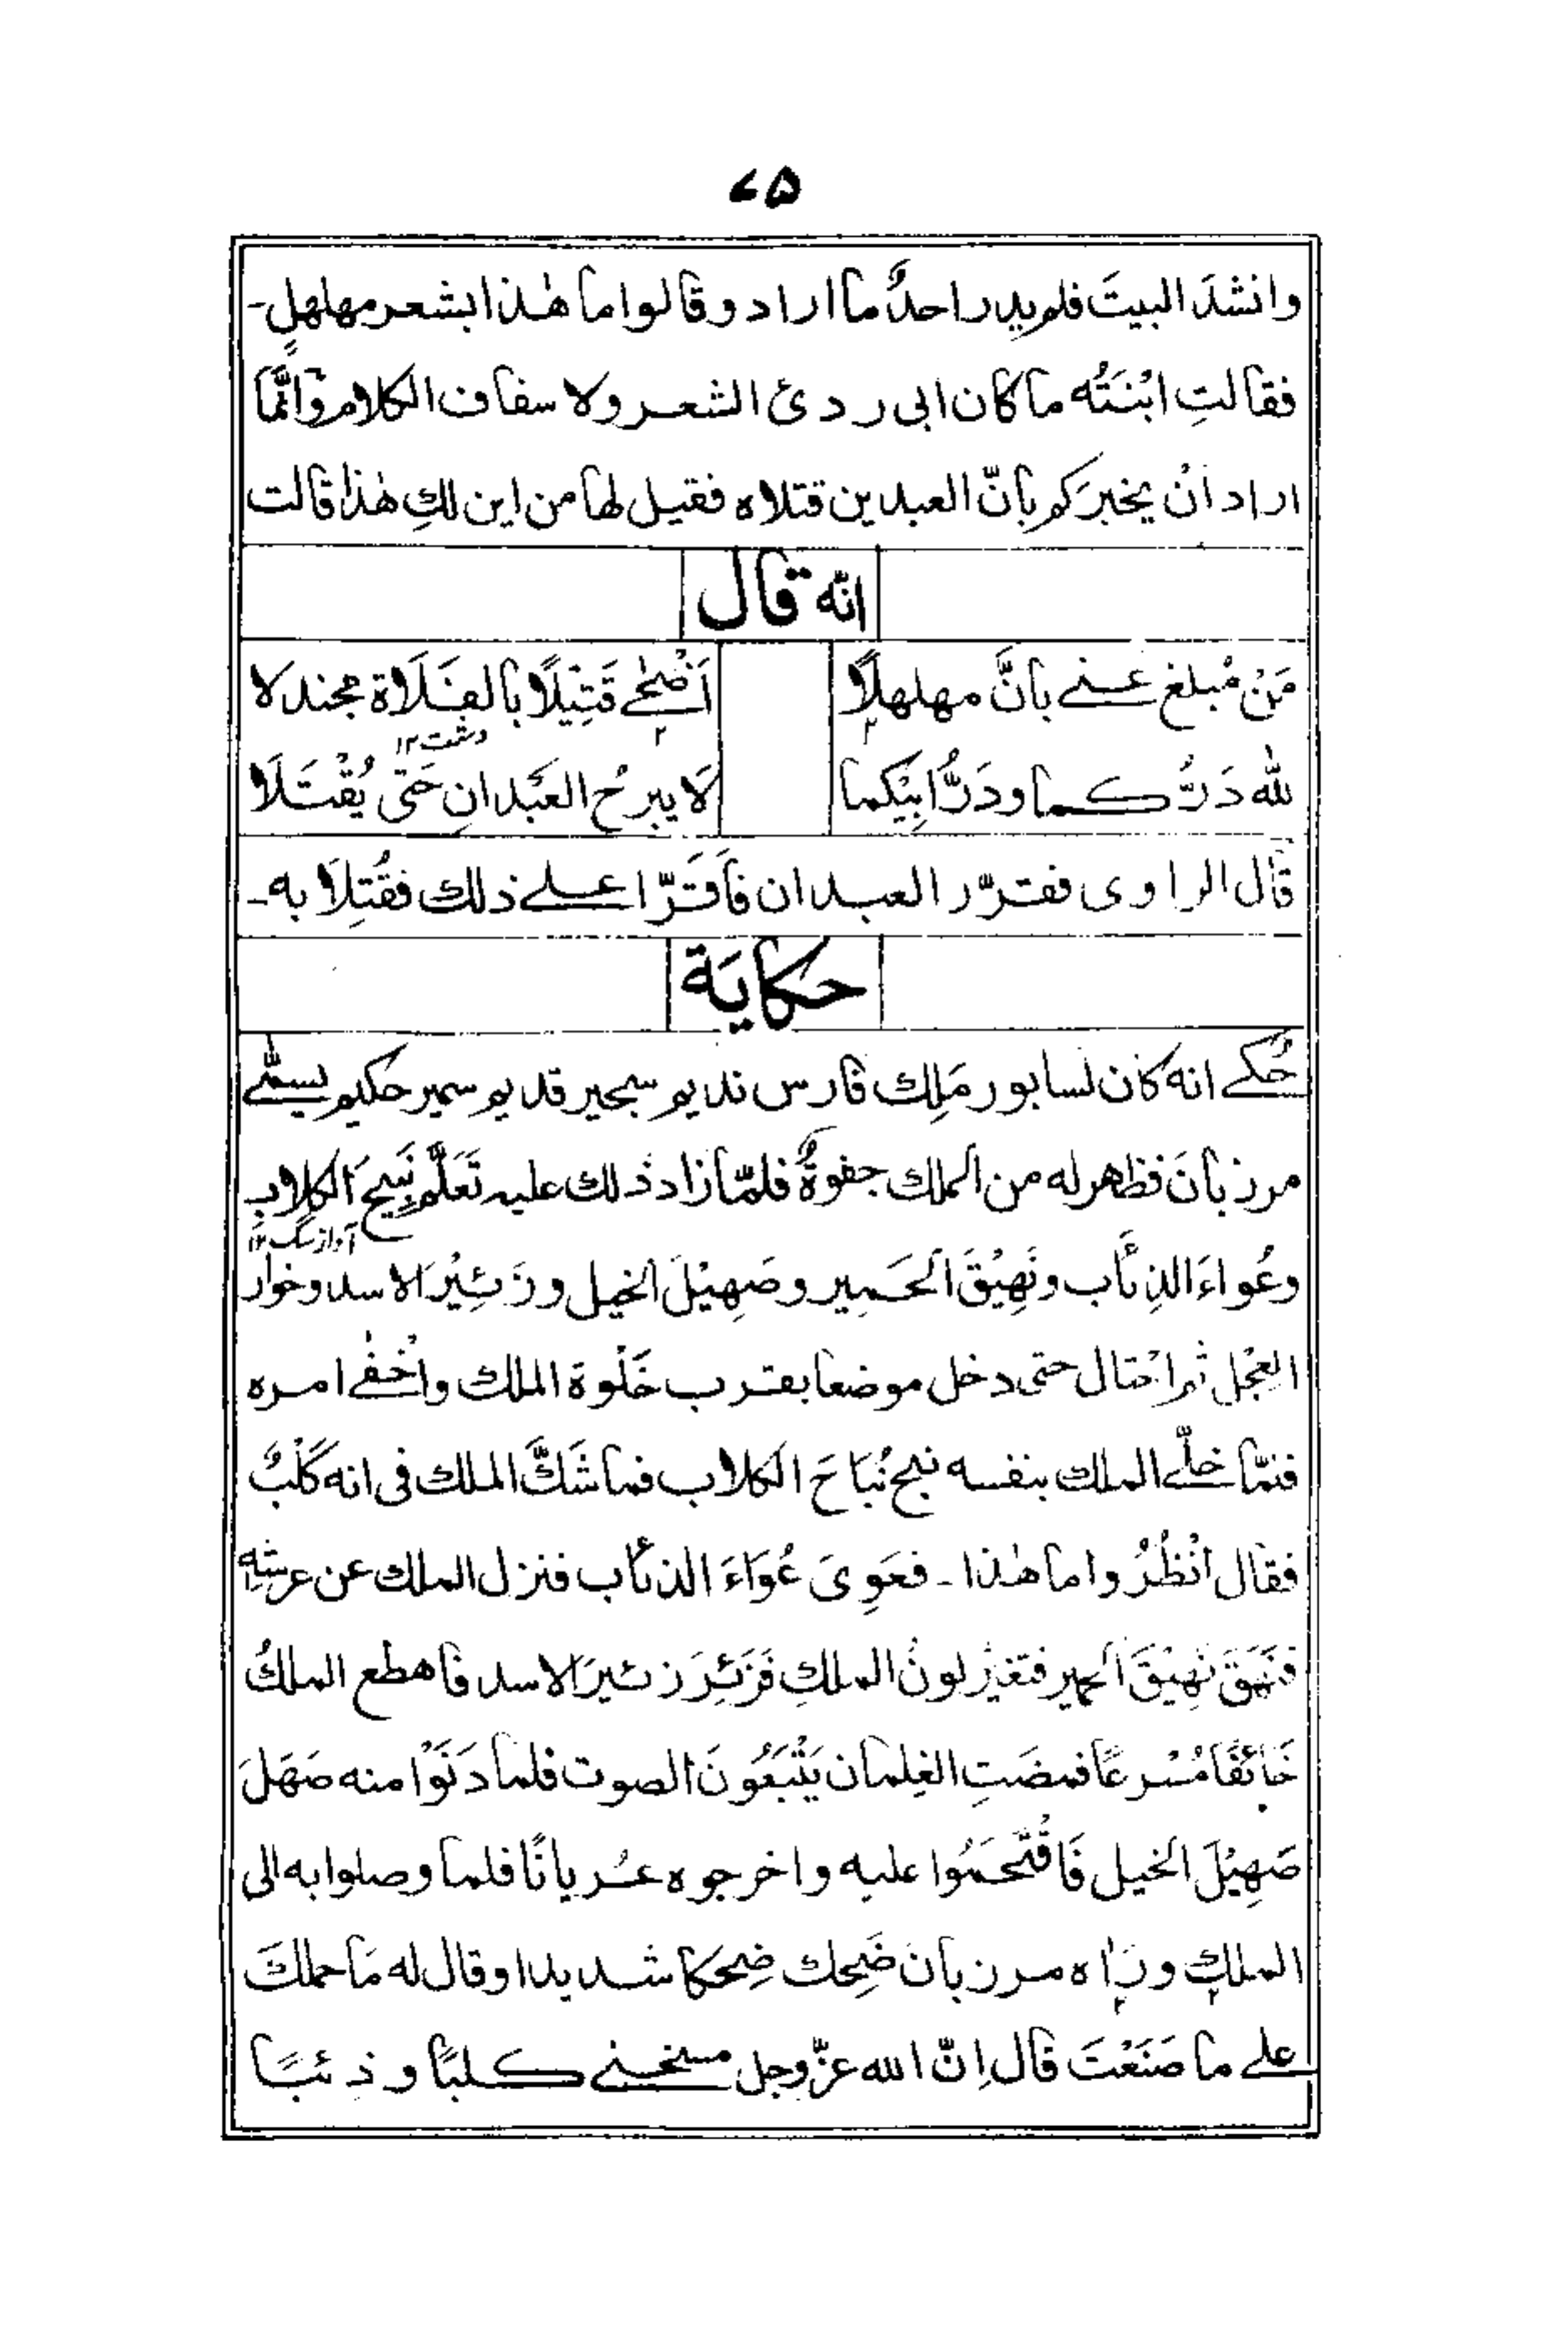 ۷۵
وانشدَ البيتَ فلم يدر احدٌ ما اراد وقالوا ما هٰذا بشعر مهلهلٍ۔
فقالتِ ابْنَتُه ما كان ابى ردئ الشعر ولا سفاف الكلام وَاِنَّمَا
اراد انْ يخبرَكم بانّ العبدين قتلاه فقيل لها من اين لكِ هٰذا قالت
انّه قال
مَنْ مُبلغ عنے بانَّ مهلهلًا
اَضْحٰے قَتِيْلًا بالفَلَاة مجندلا
دشت۱۲
لله دَرُّكما ودَرُّ ابِيْكما
لَا يبرحُ العَبْدانِ حَتّى يُقْتَلَا
قَال الراوى فقرّر العبدان فاَقَرّا علے ذلك فقُتِلَا به۔
حكايَة
حُكے انه كان لسابور مَلِك فارس نديم سجير قديم سمير حكيم يسمّٰے
مرزبانَ فظهر له من الملك جفوةٌ فلمّا زاد ذلك عليه تَعَلَّم نَبِيحَ الكلاب
آواز سگ۱۲
وعُواءَ الذِئاب ونَهِيْقَ الحَمِير وصَهِيْلَ الخيل وزَئِيْرَ الاسد وخوار
العِجْل ثم احْتال حتى دخل موضعا بقرب خَلْوة الملك واَخْفٰے امره
فنمّا خلّے الملك بنفسه نبح نُبَاحَ الكلاب فما شَكَّ الملك فى انه كَلْبٌ
فقال انْظُرُوا ما هٰذا۔ فعَوِىَ عُوَاءَ الذئاب فنزل الملك عن عرشِهٖ
فنَهَقَ نَهِيْقَ الحمير فتغيّر لونُ الملكِ فَزَئِرَ زئيرَ الاسد فاهطع الملكُ
خَائفًا مُسْرعًا فمضَتِ الغِلمان يَتْبَعُونَ الصوت فلما دَنَوْا منه صَهَلَ
صَهِيْلَ الخيل فَاقْتَحَمُوا عليه واخرجوه عُريانًا فلما وصلوا به الى
الملكِ ورَاٰه مرزبان ضَحِك ضِحكا شديدا وقال له مَا حملكَ
علے ما صَنَعْتَ قال اِنّ الله عزّوجل مسخنے كلبًا وذئبًا